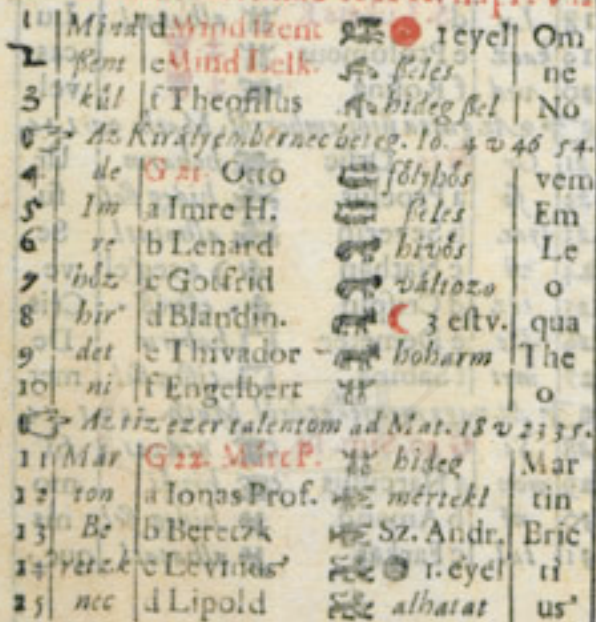 1 Mind d Mind szent 1 eyel Om
2 ßent e Mind Lelk. ßeles ne
3 kúl f Theofilus hideg ßel No
Az Királyembernec beteg. Io. 4 v 46 54.
4 de G 21. Otto fólyhós vem
5 Im a Imre H. ßeles Em
6 re b Lenard hivós Le
7 hóz c Gotfrid változo o
8 hir d Blandin. 3 estv. qua
9 det e Thivador hoharm The
10 ni f Engelbert o
Az tiz ezer talentom ad Mat. 18 v 23 35.
11 Már G 22. Márt P. hideg Mar
12 ton a Ionas Prof. mértekl tin
13 Be b Bereczk Sz. Andr. Bric
14 retzk c Levinus 1. eyel ti
25 nec d Lipold alhatat us